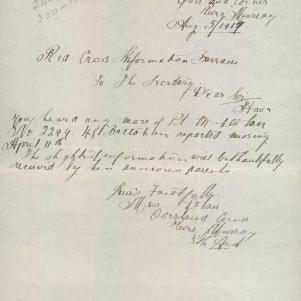 Corner
Murray
Aug. 5/1917
Red Cross Information Bureau
To The Secretary
Dear Sir
Have
you heard any more of Pt. M.
No 2299. 48th Battalion reported missing
April 11th
The slightest information will be thankfully
received by his anxious parents.
Yours Faithfully
Mrs
Corner
Murray
Sth Aus